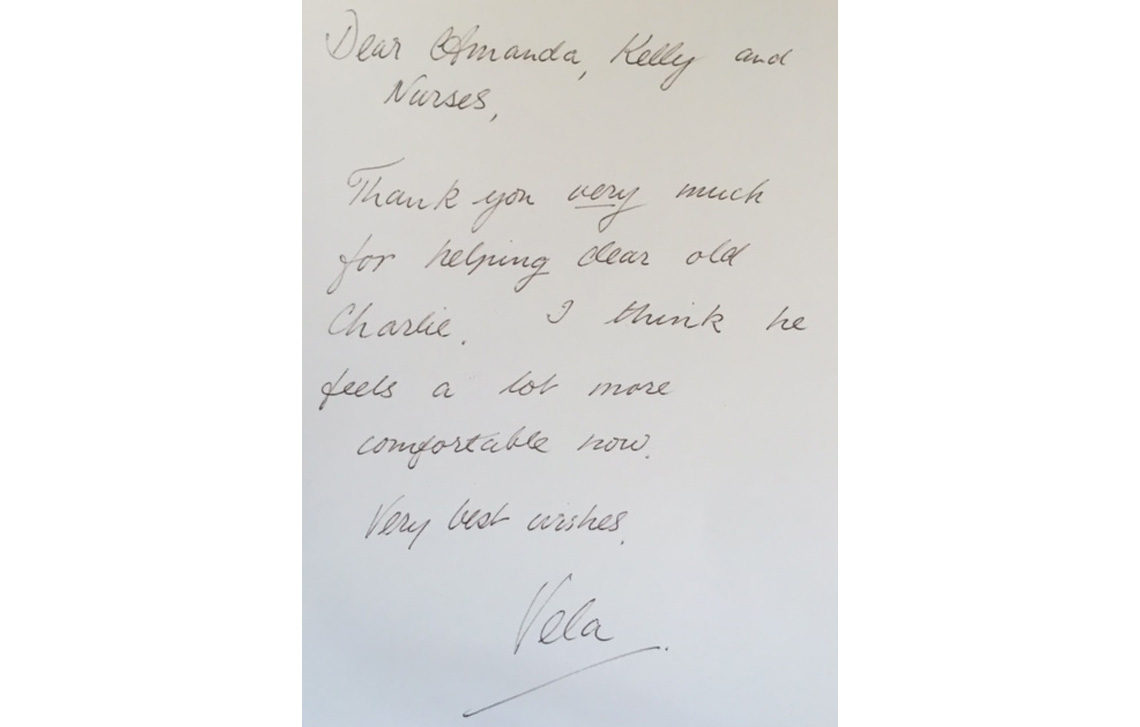 Dear Amanda, Kelly and
Nurses,
Thank you very much
for helping dear old
Charlie. I think he
feels a lot more
comfortable now.
Very best wishes.
Vela